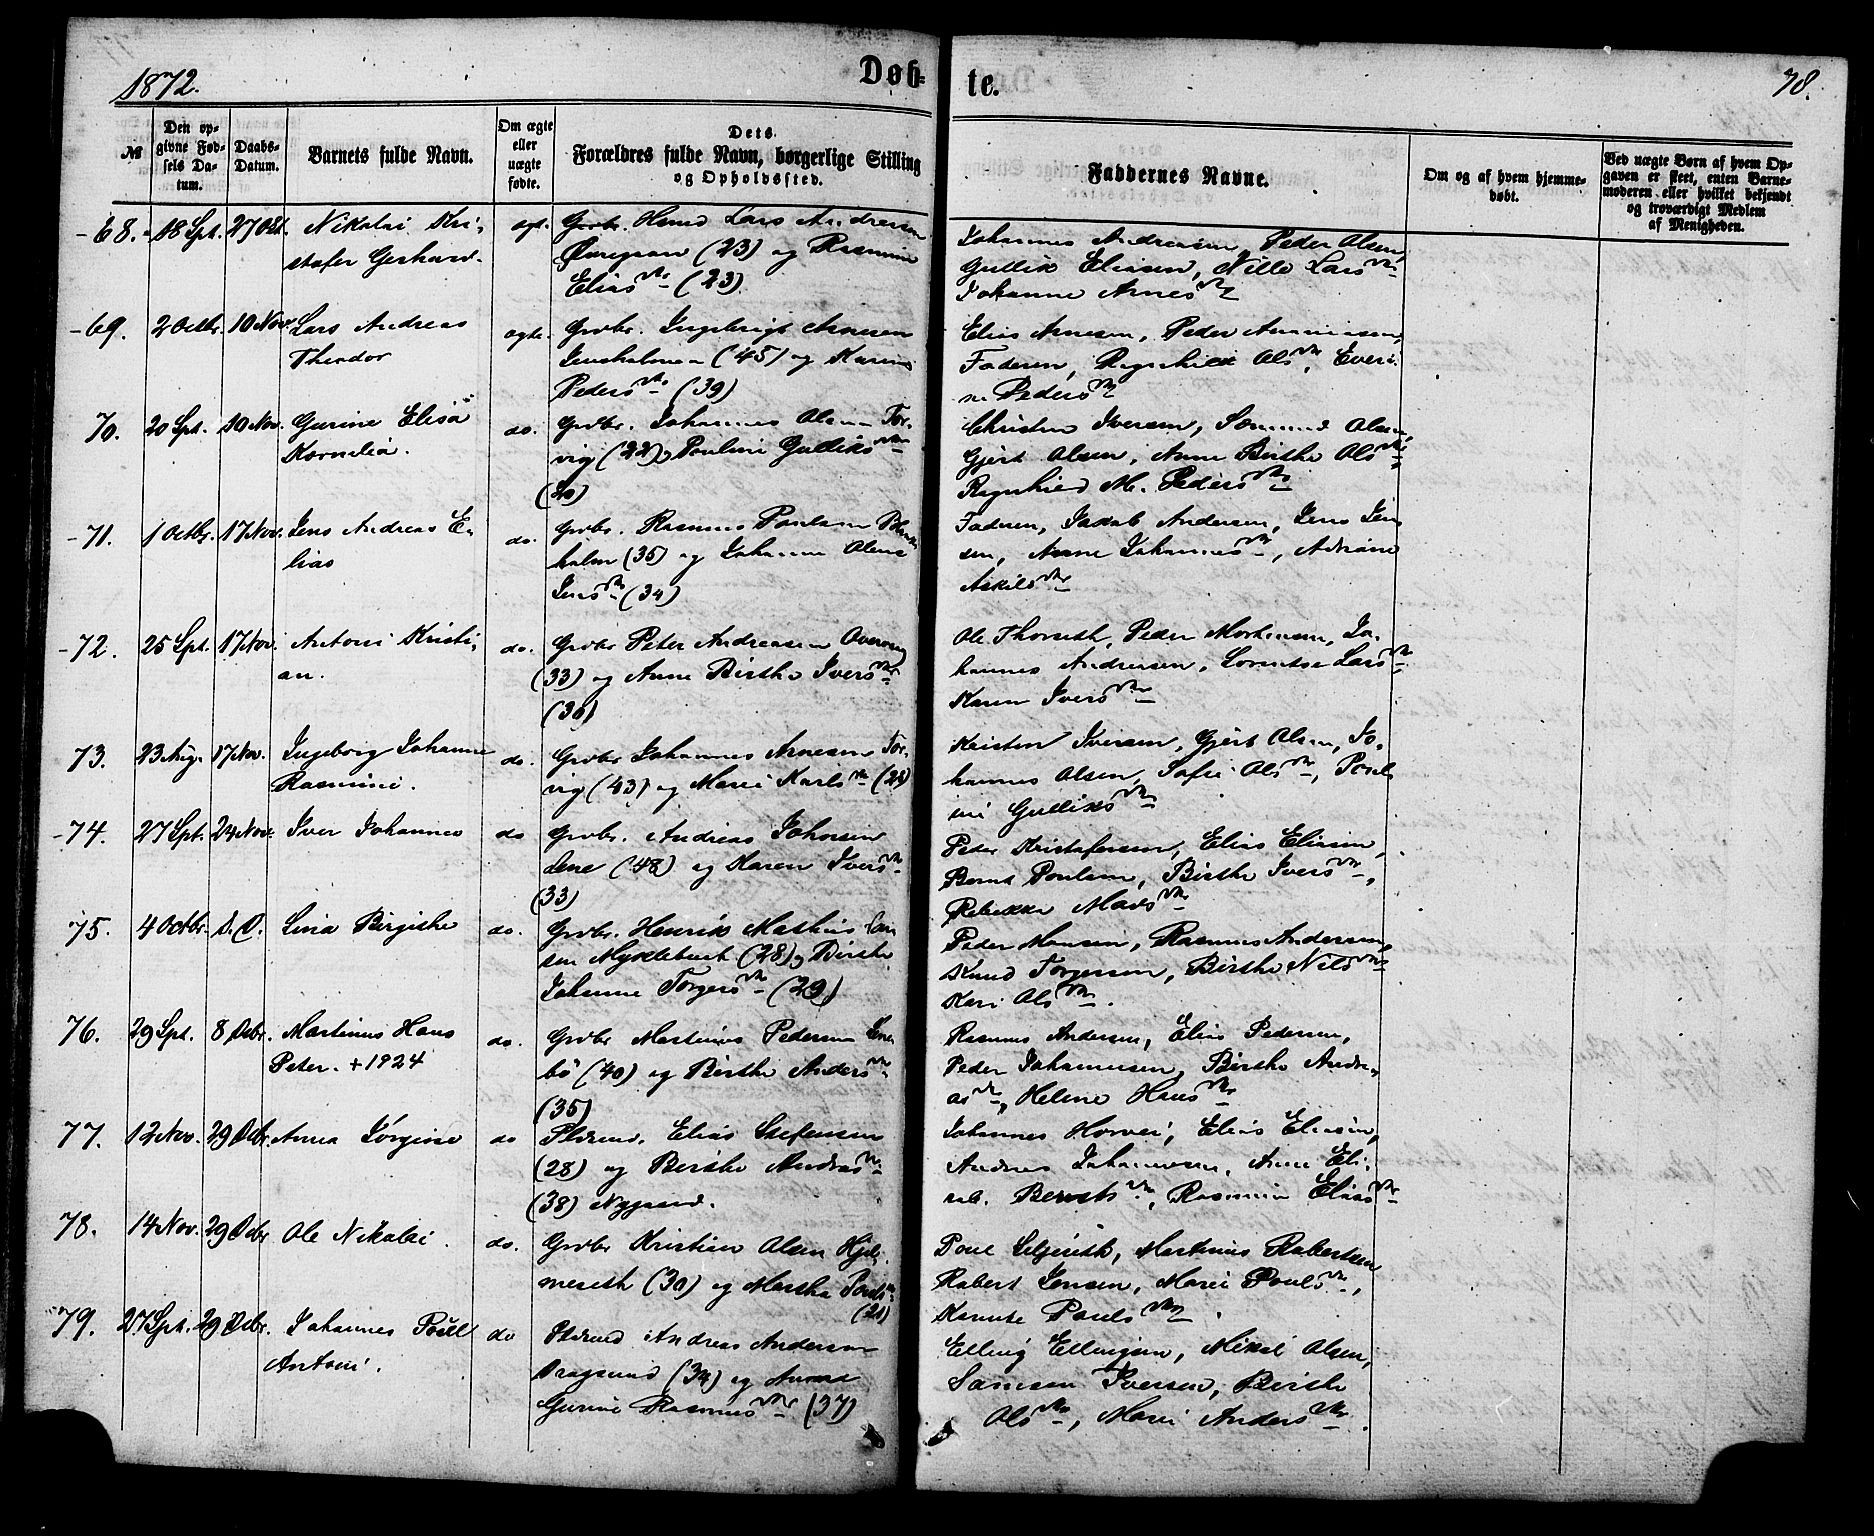 1872.
Døb-
te.
78.
№
Den op-
givne Fød-
sels Da-
tum.
Daabs-
Datum.
Barnets fulde Navn.
Om ægte
eller
uægte
fødte.
Dets
Forældres fulde Navn, borgerlige Stilling
og Opholdssted.
Faddernes Navne.
Om og af hvem hjemme-
døbt.
Ved uægte Børn af hvem Op-
gaven er skeet, enten Barne-
moderen eller hvilket bekjendt
og troværdigt Medlem
af Menigheden.
68. 18 Spt. 27 Okt. Nikolai Kri-
stofer Gerhard.
ægt. Grbr. Knud Lars Andreasen
(23) og Rasmine
Elias dtr (23)
Johannes Andreasen, Peder Olsen,
Gullik Eliasen, Nille Lars dtr
Johanne Arnes dtr
69. 2 Octbr. 10 Nov. Lars Andreas
Theodor
ægte. Grbr. Ingebrigt Arnesen
(45) og Karen
Peders dtr (39)
Elias Arnesen, Peder
Faderen, Ragnhild Ols dtr, Everi-
ne Peders dtr
70. 20 Spt. 10 Nov. Gurine Elisa
Kornelia.
do. Grbr. Johannes Olsen Tor-
vig (22) og Pauline Gulliks dtr
(20)
Christen Iversen, Sæmund Olsen,
Gjert Olsen, Anne Birthe Ols dtr,
Ragnhild M. Peders dtr
71. 1 Octbr. 17 Nov. Jens Andreas E-
lias
do. Grbr. Rasmus Poulsen
holm (35) og Johanne Olene
Jens dtr (34)
Faderen, Jakob Andersen, Jens Jen
sen, Anne Johannes dtr, Adriane
Askils dtr
72. 25 Spt. 17 Nov. Antoni Kristi-
an.
do. Grbr Peter Andreasen
(33) og Anne Birthe Ivers dtr
(30)
Ole Thorseth, Peder Mortensen, Jo-
hannes Andersen, Lorentse Lars dtr
Karen Ivers dtr
73. 23 Aug. 17 Nov. Ingeborg Johanne
Rasmine.
do. Grbr Johannes Arnesen Tor-
vig (43) og Marie Karls dtr (28)
Kristen Iversen, Gjert Olsen, Jo-
hannes Olsen, Sofie Ols dtr, Pouli
ne Gulliks dtr
74. 27 Spt. 24 Nov. Iver Johannes
do Grbr. Andreas Johnsen
(48) og Karen Ivers dtr
(33)
Peder Kristofersen, Elias Eliasen,
Bernt Poulsen, Birthe Ivers dtr,
Rebekka Mads dtr
75. 4 Octbr. d. D. Lina Birgithe
do. Grbr. Henrik Mathias
sen Myklebust (28) og Birthe
Johanne Torgers dtr (29)
Peder Monsen, Rasmus Andersen,
Knud Torgersen, Birthe Nils dtr
Kari Ols dtr.
76. 29 Spt. 8 Dcbr. Martinus Hans
Peter. + 1924
do. Grbr Martinus Pedersen
bö (40) og Birthe Anders dtr
(35)
Rasmus Andersen, Elias Pedersen,
Peder Johannesen, Birthe Andre-
as dtr, Helene Hans dtr
77. 12 Nov. 29 Dcbr. Anna Jørgine
do Elias Stefensen
(28) og Birthe Andreas dtr
(38) Nygaard.
Johannes Elias Eliasen,
Andreas Johannesen, Anne Eli-
sab. Bernts dtr, Rasmine Elias dtr
78. 14 Nov. 29 Dcbr Ole Nikolai.
do. Grbr Kristian Olsen Hjel-
meseth (30) og Martha Pouls dtr
(21)
Poul Martinus Robertsen
Robert Jensen, Marie Pouls dtr,
Kanute Pouls dtr.
79. 27 Spt. 29 Dcbr. Johannes Poul
Antoni.
do Andreas Andersen
Dragsund (34) og Anne
Gurine Rasmus dtr (37)
Elling Ellingsen, Mikal Olsen,
Samson Iversen, Birthe
Ols dtr, Marie Anders dtr.